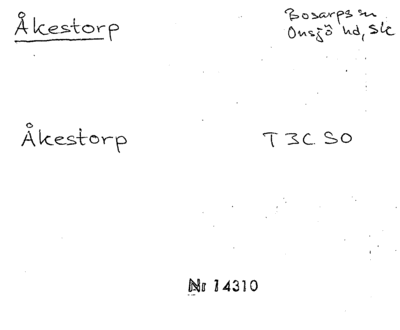 Åkestorp
Bosarps sn
Onsjö hd, Sk
Åkestorp
T 3C SO
Nr 14310